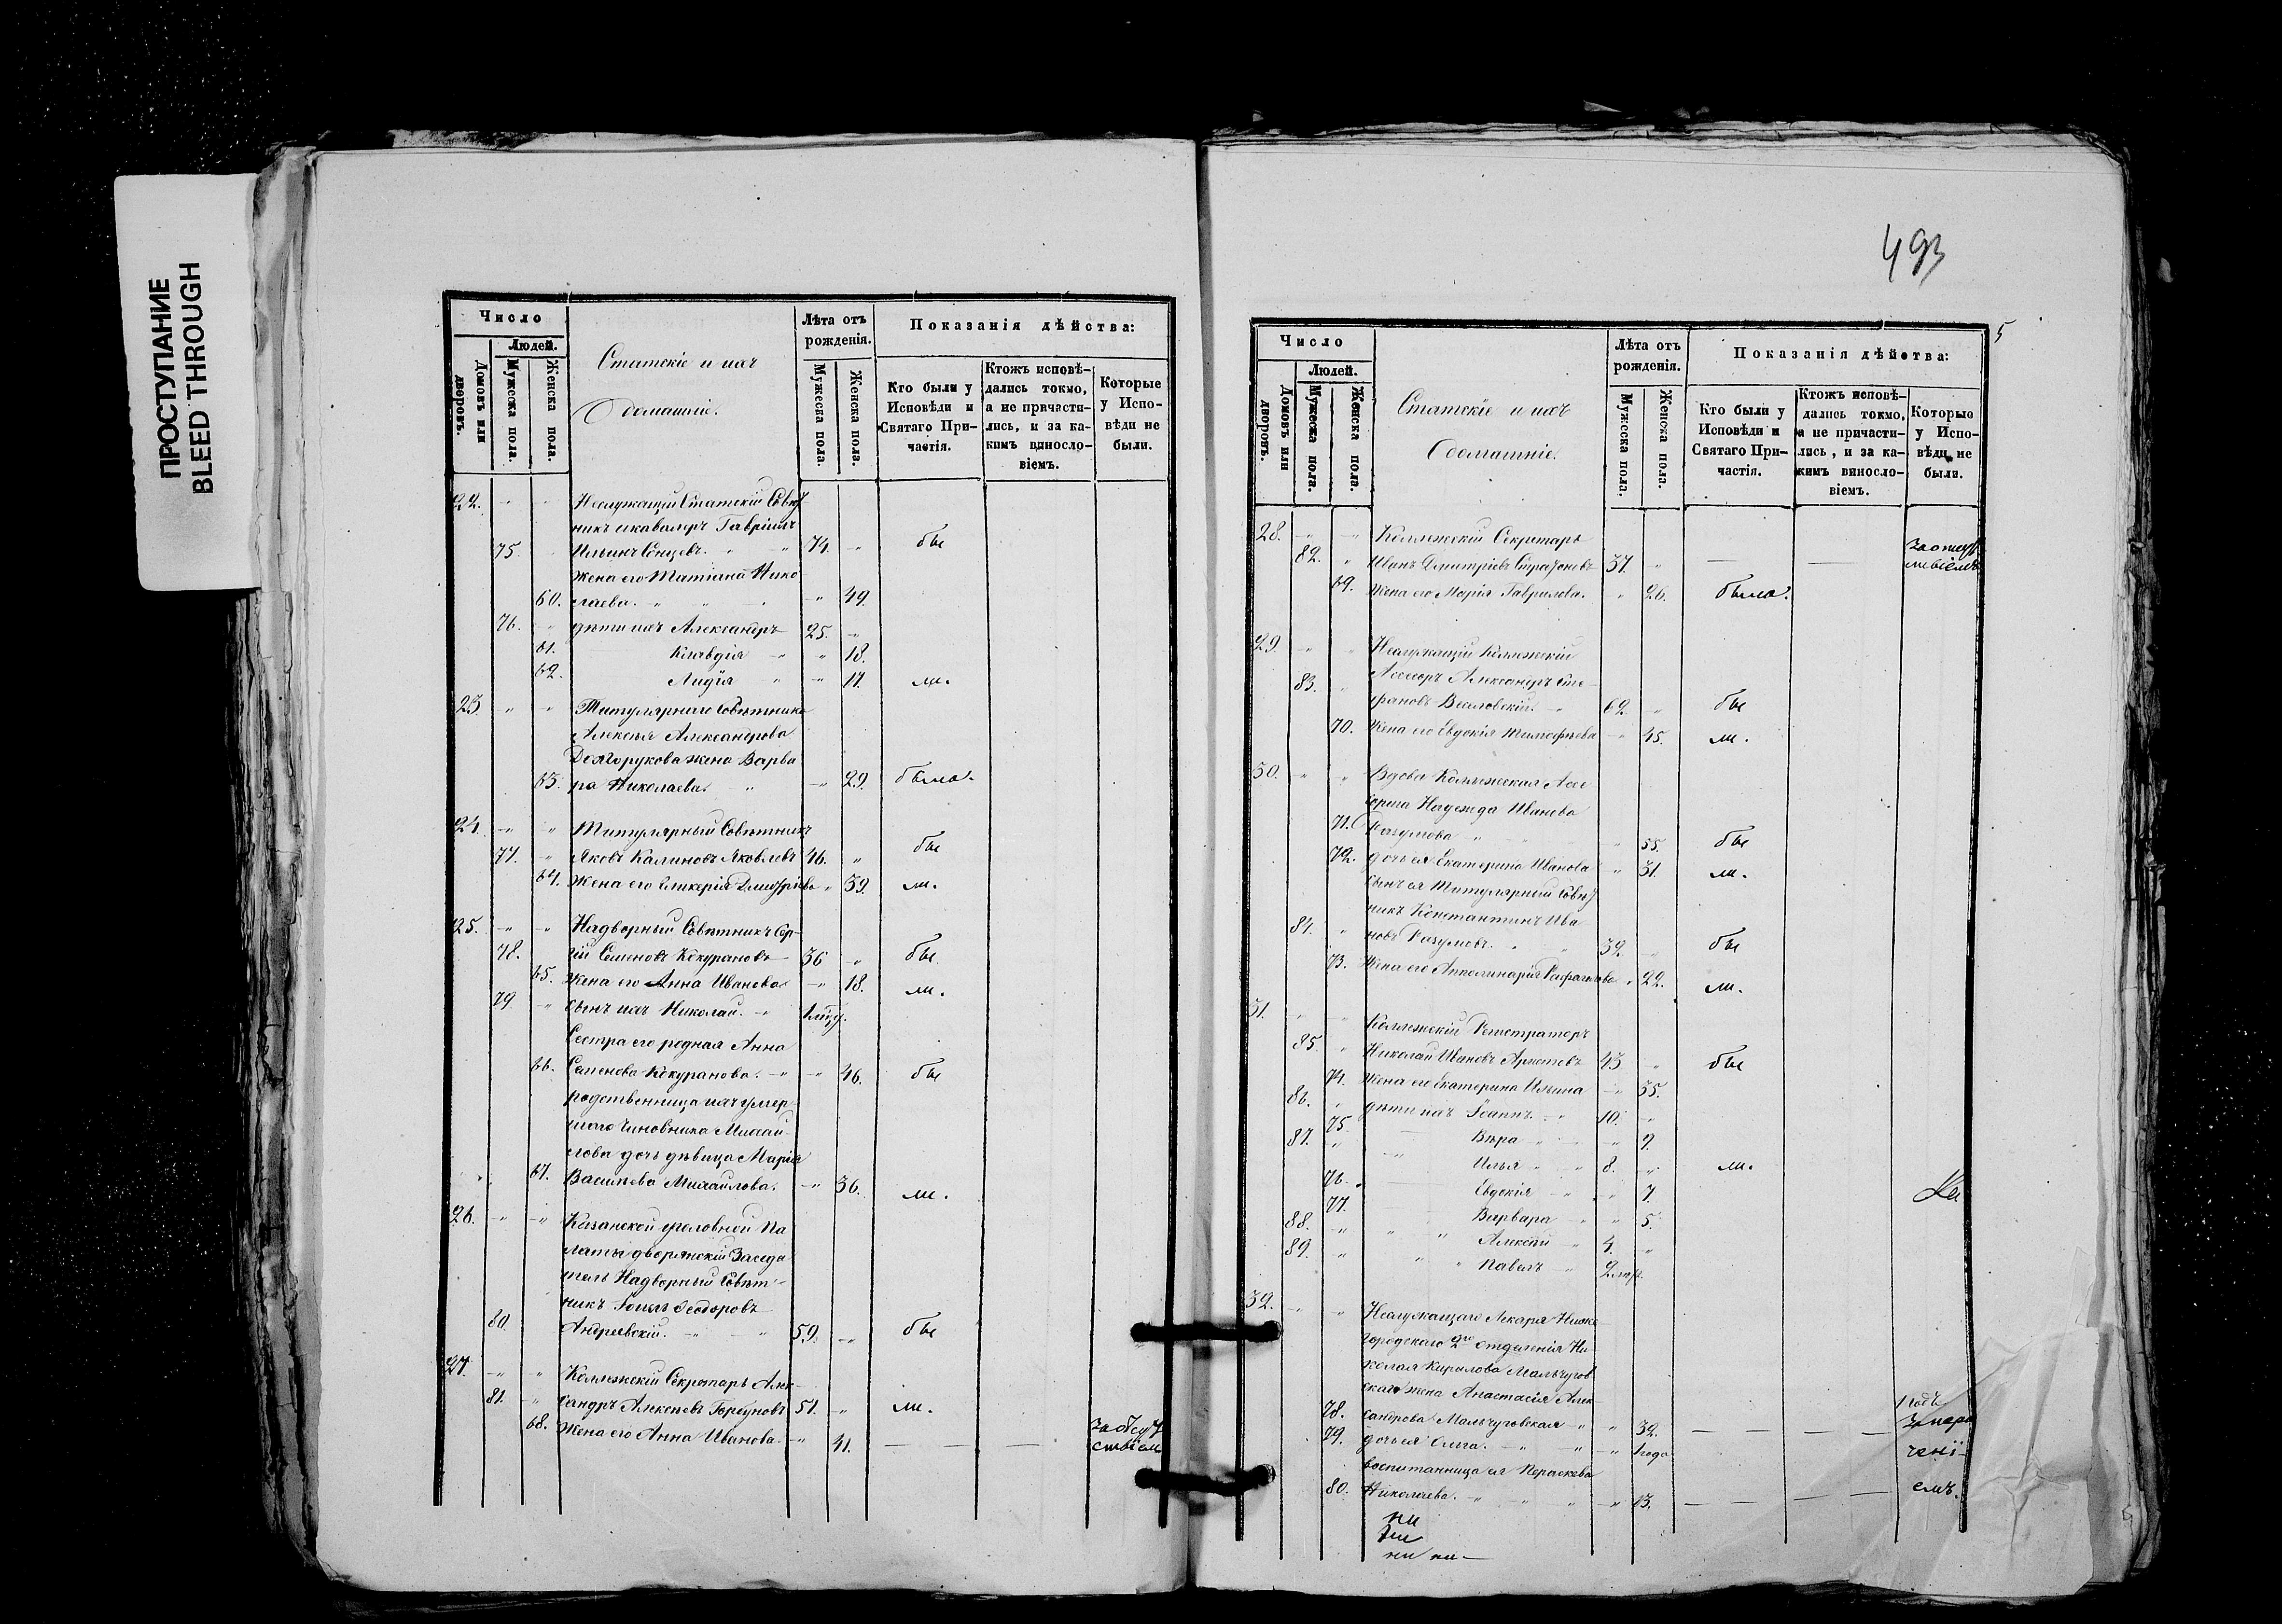 ПРОСТУПАНИЕ
BLEED THROUGH
Число
Людей.
Домовъ или дворовъ.
Мужеска пола.
Женска пола.
Статскіе и ихъ
домашніе.
Лѣта отъ рожденія.
Мужеска пола.
Женска пола.
Показанія дѣйства:
Кто были у Исповѣди и Святаго Причастія.
Ктожъ исповѣдались токмо, а не причастились, и за какимъ винословіемъ.
Которые у Исповѣди не были.
22. Неслужащій Статскій Совѣт
никъ и кавалеръ Гавріилъ
75. Ильинъ 74. бы
жена его Татіана Нико
60. лаева. 49.
76. дѣти ихъ Александръ 25.
61. Клавдія 18.
62. Лидія 17. ли.
23. Титулярнаго Совѣтника
Алексѣя Александрова
Долгорукова жена Варва
63. ра Николаева. 29. была.
24. Титулярный Совѣтникъ
77. Яковъ Калиновъ Яковлевъ 46. бы
64. жена его Гликерія Дмитріева 39. ли.
25. Надворный Совѣтникъ Сер-
78. гій Семеновъ Кокурановъ 36 бы
65. жена его Анна Иванова 18. ли.
79 сынъ ихъ Николай.
Сестра его родная Анна
66. Семенова Кокуранова. 46. бы
родственница ихъ умер
шаго чиновника Михай
лова дочь дѣвица Марія
67. Васильева Михайлова. 36. ли.
26. Казанской уголовной Па
латы дворянскій Заседа
тель Надворный Совѣт
никъ Ѳеодоровъ
80. Андреевскій. 59. бы
27. Коллежскій Секретарь Алек-
81. сандръ Алексѣевъ Горбуновъ 51. ли.
68. жена его Анна Иванова. 41. за отсут
ствіем
493
5
Число
Людей.
Домовъ или дворовъ.
Мужеска пола.
Женска пола.
Статскіе и ихъ
домашніе.
Лѣта отъ рожденія.
Мужеска пола.
Женска пола.
Показанія дѣйства:
Кто были у Исповѣди и Святаго Причастія.
Ктожъ исповѣдались токмо, а не причастились, и за какимъ винословіемъ.
Которые у Исповѣди не были.
28. Коллежскій Секретарь
82. Иванъ Дмитріевъ 37. за отсут
69. жена его Марія Гаврилова. 26. была.
29. Неслужащій Коллежскій
83. Ассесоръ Александръ Сте-
фановъ Веселовскій. 62. бы
70. жена его Евдокія Тимофѣева 45. ли.
30. Вдова Коллежская Ассе
сорша Надежда Иванова
71. Разумова 55. бы
72. дочь ея Екатерина Иванова 31. ли.
сынъ ея Титулярный Совѣт
никъ Константинъ Ива
84. новъ Разумовъ. 32. бы
73. жена его Апполинарія 22. ли.
31. Коллежскій Регистраторъ
85. Николай Ивановъ 43 бы
74. жена его Екатерина Ильина 35.
86. дѣти ихъ Іоаннъ 10.
75. Вѣра 9.
87. Илья 8. ли.
76. Евдокія 7.
77. Варвара 5.
88. Алексѣй 4.
89. Павелъ
32. Неслужащаго Лекаря Ниже
городскаго 2го отделенія Ни
колая Кирилова Мальчугов
скаго жена Анастасія Алек-
78. сандрова Мальчуговская 32.
79. дочь ея Ольга. 1 года
воспитанница ея Параскева
80. Николаева. 13.